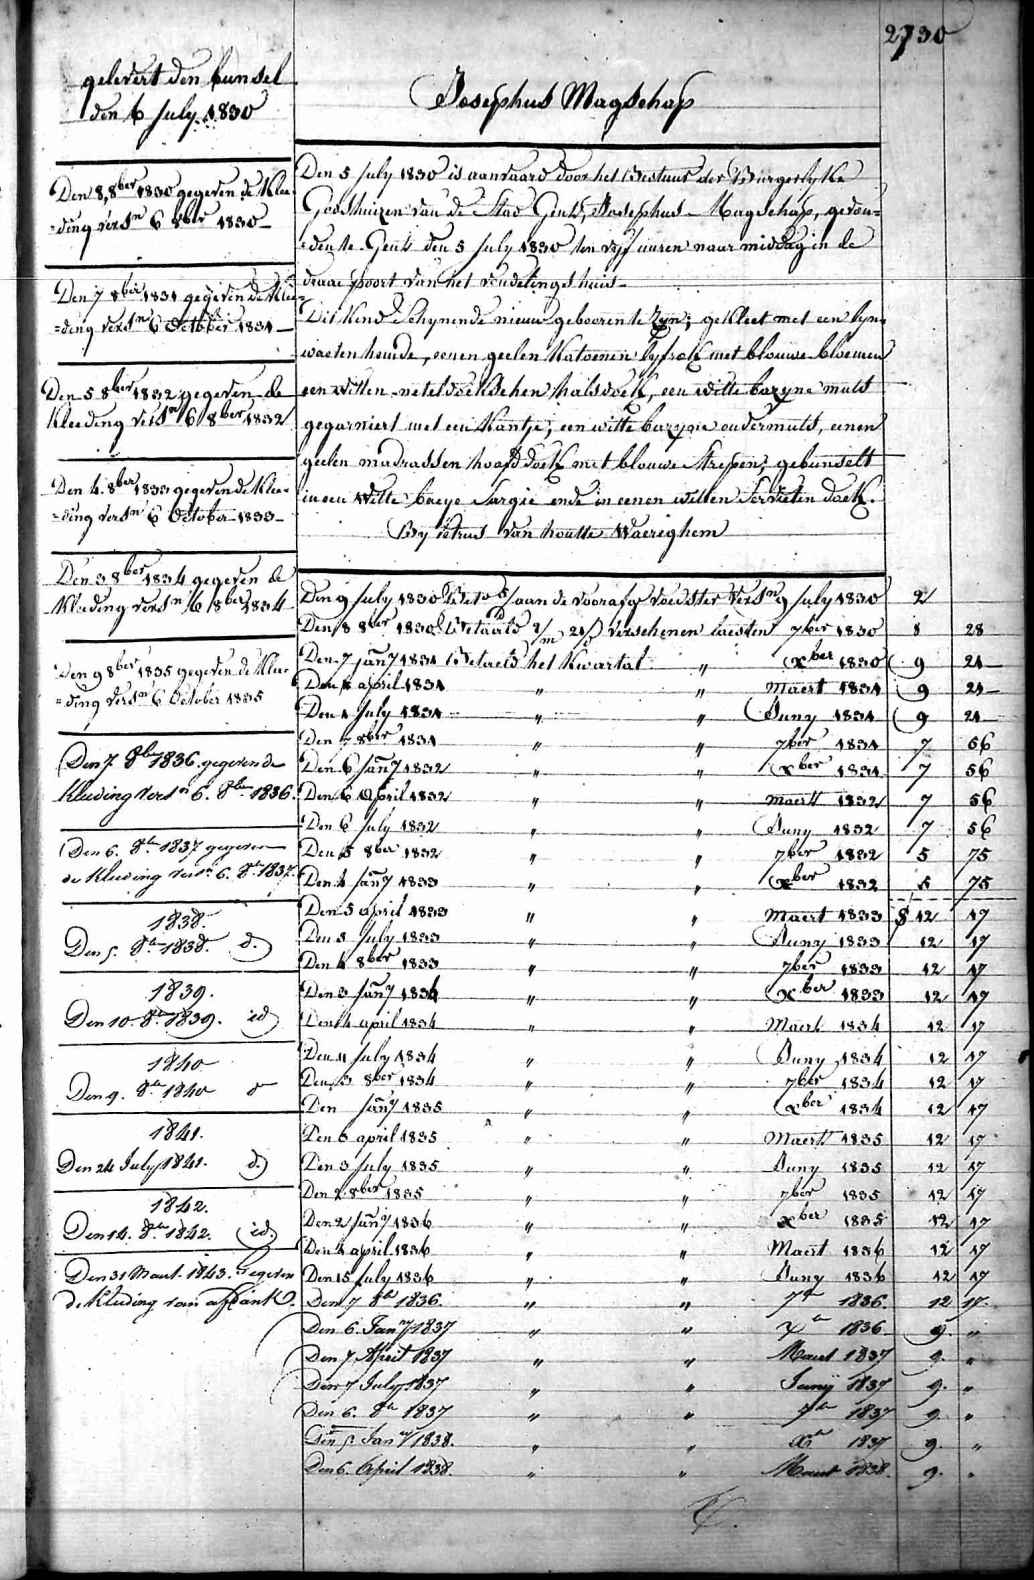 2730
gelevert den bunsel
den 6 July 1830
Josephus Magschap
Den 8, 8ber 1830 gegeven de Klee-
=ding versn 6 8ber 1830
Den 7 8ber 1831 gegeven de Klee-
=ding versn 6 October 1831
Den 5 8ber 1832 gegeven de
Kleeding versn 6 8ber 1832
Den 4. 8ber 1833 gegeven de Klee-
=ding versn 6 October 1833
Den 3 8ber 1834 gegeven de
Kleeding versn 6 8ber 1834
Den 9 8ber 1835 gegeven de Klee-
=ding versn 6 October 1835
Den 7. 8ber 1836. gegeven de
Kleeding versn 6. 8ber 1836.
Den 6. 8br 1837 gegeven
de Kleeding versn 6. 8br 1837.
1838.
Den 5. 8br 1838. d.
1839.
Den 10. 8br 1839. id
1840
Den 9. 8br 1840 d
1841.
Den 24 July 1841. d.
1842.
Den 14. 8br 1842. id.
Den 31 Maart. 1843. gegeven
de Kleeding van
Den 5 July 1830 is aanvaard door het Bestuur der Burgerlyke
Godshuizen van de Stad Gend, Josephus Magschap, gevon-
=den te Gend den 5 July 1830 ten vyf uuren naar middag in de
draai poort van het vondelingshuis
Dit kind schynende nieuw geboren te zyn; gekleet met een lyn-
waeten hemde, eenen geelen Katoenen lyfrok met blouwe bloemen
een witten neteldoekschen halsdoek, een witte bazyne muts
gegarniert met een Kantje, een witte bazyne ondermuts, eenen
geelen madrassen hoofddoek met blouwe strepen, gebunselt
in een witte baeye Sargie ende in eenen witten servieten doek.
By Petrus van houtte Waereghem
Den 9 July 1830 aan de voorafg voedster versn 9 July 1830 2
Den 8 8ber 1830 Betaelt 2/m 21/d verschenen laesten 7ber 1830 8 28
Den 7 Jany 1831 Betaelt het Kwartal " xber 1830 9 21
Den april 1831 " " Maert 1831 9 21
Den 4 July 1831 " " Juny 1831 9 21
Den 7 8ber 1831 " " 7ber 1831 7 56
Den 6 Jany 1832 " " xber 1831 7 56
Den 6 April 1832 " " Maert 1832 7 56
Den 6 July 1832 " " Juny 1832 7 56
Den 5 8ber 1832 " " 7ber 1832 5 75
Den 4 Jany 1833 " " xber 1832 5 75
Den 5 april 1833 " " Maert 1833 12 17
Den 5 July 1833 " " Juny 1833 12 17
Den 4 8ber 1833 " " 7ber 1833 12 17
Den 3 Jany 1834 " " xber 1833 12 17
Den 4 april 1834 " " Maert 1834 12 17
Den 4 July 1834 " " Juny 1834 12 17
Den 3 8ber 1834 " " 7ber 1834 12 17
Den Jany 1835 " " xber 1834 12 17
Den 6 april 1835 " " Maert 1835 12 17
Den 3 July 1835 " " Juny 1835 12 17
Den 2 8ber 1835 " " 7ber 1835 12 17
Den 2 Jany 1836 " " xber 1835 12 17
Den 4 april 1836 " " Maert 1836 12 17
Den 15 July 1836 " " Juny 1836 12 17
Den 7 8br 1836. " " 7br 1836. 12 17.
Den 6. Jany 1837 " " Xbr 1836 9. "
Den 7 April 1837 " " Maert 1837 9. "
Den 7 July 1837 " " Juny 1837 9. "
Den 6. 8br 1837 " " 7br 1837 9. "
Den 5 Jany 1838. " " Xbr 1837 9. "
Den 6. April 1838. " " Maert 1838. 9. "